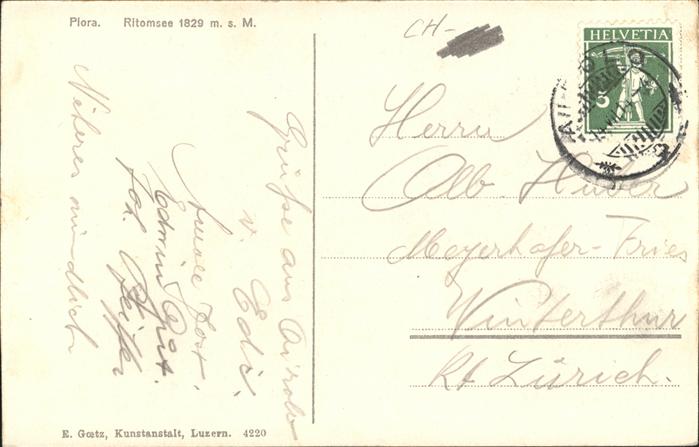 Piora. Ritomsee 1829 m. s. M.
CH-
HELVETIA
5
AIROLO
Herrn
Alb. Huber
Meyerhofer-Fries
Winterthur
Kt. Zürich.
Grüsse aus Airolo
v. Edi.
Jost.
Edwin
Joh. Pfeifer
Näheres mündlich
E. Gœtz, Kunstanstalt, Luzern. 4220